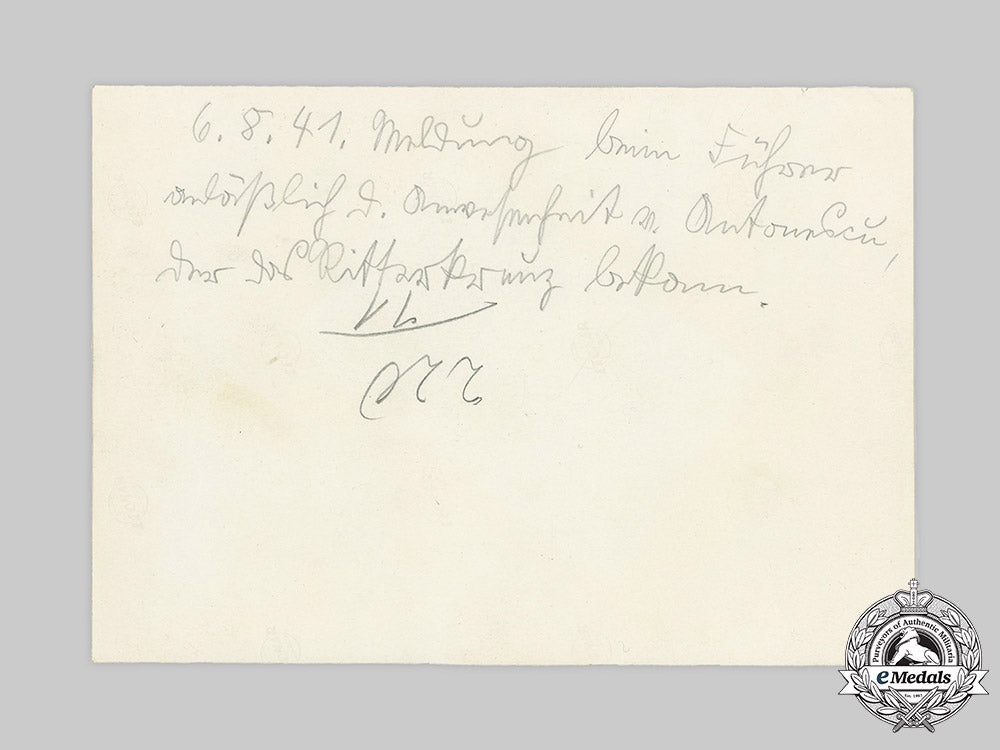 6. 8. 41. Meldung beim Führer
anläßlich d. Anwesenheit v. Antonescu,
der das Ritterkreuz bekam.
Purveyors of Authentic Militaria
eMedals